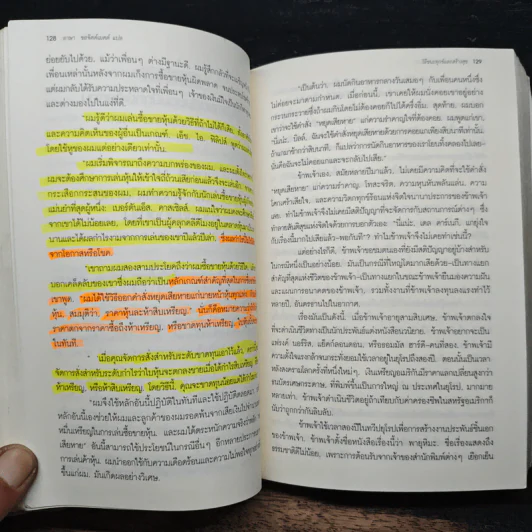 128 ภาษา ชอจิตต์เมตต์ แปล
ย่อยยับไปด้วย. แม้ว่าเพื่อนๆ ต่างมีฐานะดี.
เพื่อนเหล่านั้นหลังจากผมเก็งการซื้อขายหุ้นผิดพลาด จนประสบ
แต่ผมกลับได้รับความประหลาดใจที่เพื่อนๆ เจ้าของเงินมิใช่เป็น
และต่างมองไปในแง่ที่ดี.
"ผมรู้ดีว่าผมเล่นซื้อขายหุ้นด้วยวิธีที่ไม่ได้ดีเลย.
และความคิดเห็นของผู้อื่นเป็นเกณฑ์. เอ็ช. ไอ. ฟิลิปส์
โดยใช้หูของผมแต่อย่างเดียวเท่านั้น.
"ผมเริ่มพิจารณาถึงความบกพร่องของผม. และผมตั้งใจ
ผมจะต้องศึกษาการเล่นหุ้นให้เข้าใจถี่ถ้วนเสียก่อนแล้วจึงจะ
กระเสือกกระสนของผม. ผมทำความรู้จักกับนักเล่นหุ้น
แม่นยำที่สุดผู้หนึ่ง: เบอร์ตันเอ็ส. คาสเซิลส์.
จากเขาได้ไม่น้อยเลย. โดยที่เขาเป็นผู้คลุกคลีตีโมงอยู่ในตลาดหุ้น
นานและได้ผลกำไรงามจากการเล่นของเขาปีแล้วปีเล่า.
จากโอกาสหรือโชค.
"เขาถามผมสองสามประโยคถึงว่าผมซื้อขายหุ้นด้วยวิธีใด.
บอกเคล็ดลับของเขาซึ่งผมถือว่าเป็นหลักเกณฑ์สำคัญที่สุด
เขาพูด. "ผมได้ใช้วิธีออกคำสั่งหยุดเสียหายแก่นายหน้าหุ้น
หุ้น. สมมุติว่า. ราคาหุ้นละห้าสิบเหรียญ.
ราคาตกจากราคาซื้อถึงห้าเหรียญ. หรือขาดทุนห้าเหรียญ
ในทันที.
"เมื่อคุณจัดการสั่งสำหรับระดับขาดทุนเอาไว้แล้ว.
จัดการสั่งสำหรับระดับกำไรว่าในหุ้นจะตกลงขายเมื่อได้กำไร
ห้าเหรียญ. หรือห้าสิบเหรียญ. โดยวิธีนี้. คุณจะขาดทุนน้อย
"ผมจึงใช้หลักอันนี้ปฏิบัติในทันทีและใช้ปฏิบัติตลอดมา.
หลักอันนี้เองช่วยให้ผมและลูกค้าของผมรอดพ้นจากเสียเงินไป
หมื่นเหรียญในการเล่นซื้อขายหุ้น. และผมได้ตระหนักว่า
เสียหาย" อันนี้สามารถใช้ประโยชน์ในกรณีอื่นๆ อีกหลายประการ
การเล่นค้าหุ้น. ผมนำออกใช้กับความเดือดร้อนและความไม่พอใจ
ขึ้นแก่ผม. มันเกิดผลอย่างวิเศษ.
วิธีชนะทุกข์และสร้างสุข 129
"เป็นต้นว่า. ผมนัดกินอาหารกลางวันเสมอๆ กับเพื่อนคนหนึ่งซึ่ง
ไม่ค่อยจะมาตามกำหนด. เมื่อก่อนนี้. เขาเคยให้ผมนั่งคอยเขาอยู่อย่าง
เขาว่าจะใช้คำสั่ง "หยุดเสียหาย" แก่ความรำคาญใจที่ต้องคอย. ผมพูดแก่เขา.
'นี่แน่ะ. บิลล์. ฉันจะใช้คำสั่งหยุดเสียหายด้วยการคอยนายเพียงสิบนาทีเท่านั้น.
ถ้านายช้ากว่าสิบนาที. ก็แปลว่าการนัดกินอาหารของเราโยนทิ้งลงไปเลย—
นั่นคือฉันจะไม่คอยและจะกลับไปเสีย.'"
ข้าพเจ้าเอง. สมัยหลายปีมาแล้ว. ไม่เคยมีความคิดที่จะใช้คำสั่ง
"หยุดเสียหาย" แก่ความรำคาญ. โทสะจริต. ความหุนหันพลันแล่น. ความ
โศกเศร้าเสียใจ. และความวิตกทุกข์ร้อนแห่งจิตใจนานาประการของข้าพเจ้า
เลย. ทำไมข้าพเจ้าจึงไม่เคยมีสติปัญญาที่จะจัดการกับสถานการณ์ต่างๆ ซึ่ง
ทำลายสันติสุขแห่งจิตใจของข้าพเจ้า. และพูดแก่ตนเองว่า: "นี่แน่ะ. เดล คาร์เนกี. กังวล
กับเรื่องนี้มากไปเสียแล้ว—พอกันที"? ทำไมข้าพเจ้าจึงไม่เคยทำเช่นนี้?
อย่างไรก็ดี. ข้าพเจ้าขอชมตนเองที่ยังมีสติปัญญาอยู่บ้างสำหรับ
ในกรณีหนึ่งเป็นอย่างน้อย. มันเป็นกรณีที่ใหญ่โตมากเสียด้วย—เป็นทางแยก
สำคัญที่สุดแห่งชีวิตของข้าพเจ้า—เป็นทางแยกในขณะที่ข้าพเจ้ายืนมองความฝัน
และแผนการอนาคตของข้าพเจ้า. รวมทั้งงานที่ข้าพเจ้าลงทุนลงแรงทำไว้
หลายปี. อันตรธานไปในอากาศ.
เรื่องมันเป็นดังนี้. เมื่อข้าพเจ้าอายุสามสิบเศษ. ข้าพเจ้าตกลงใจ
ที่จะดำเนินชีวิตทางเป็นนักประพันธ์แต่งหนังสือนวนิยาย. ข้าพเจ้าอยากจะเป็น
แฟรงค์ นอร์ริส. แย็คก์ลอนดอน. หรือธอมมัส ฮาร์ดี—คนที่สอง. ข้าพเจ้ามี
ความตั้งใจแรงกล้าจนกระทั่งยอมใช้เวลาอยู่ในยุโรปถึงสองปี. ตอนนั้นเป็นเวลา
หลังสงครามโลกครั้งที่หนึ่งใหม่ๆ. เงินเหรียญอเมริกันมีราคาแลกเปลี่ยนสูงกว่า
ธนบัตรเศษกระดาษ. ที่พิมพ์ขึ้นเป็นการใหญ่ ณ ประเทศในยุโรป. มากมาย
หลายเท่า. ข้าพเจ้าดำเนินชีวิตอยู่ถ้าเทียบกับค่าครองชีพในสหรัฐอเมริกาก็
นับว่าถูกกว่ากันลิบลับ.
ข้าพเจ้าใช้เวลาสองปีในทวีปยุโรปเพื่อการสร้างงานประพันธ์ชิ้นเอก
ของข้าพเจ้า. ข้าพเจ้าตั้งชื่อหนังสือเรื่องนี้ว่า พายุหิมะ. ชื่อเรื่องแสดงถึง
ธรรมชาติดีไม่น้อย. เพราะการต้อนรับจากเจ้าของสำนักพิมพ์ต่างๆ เยือกเย็น